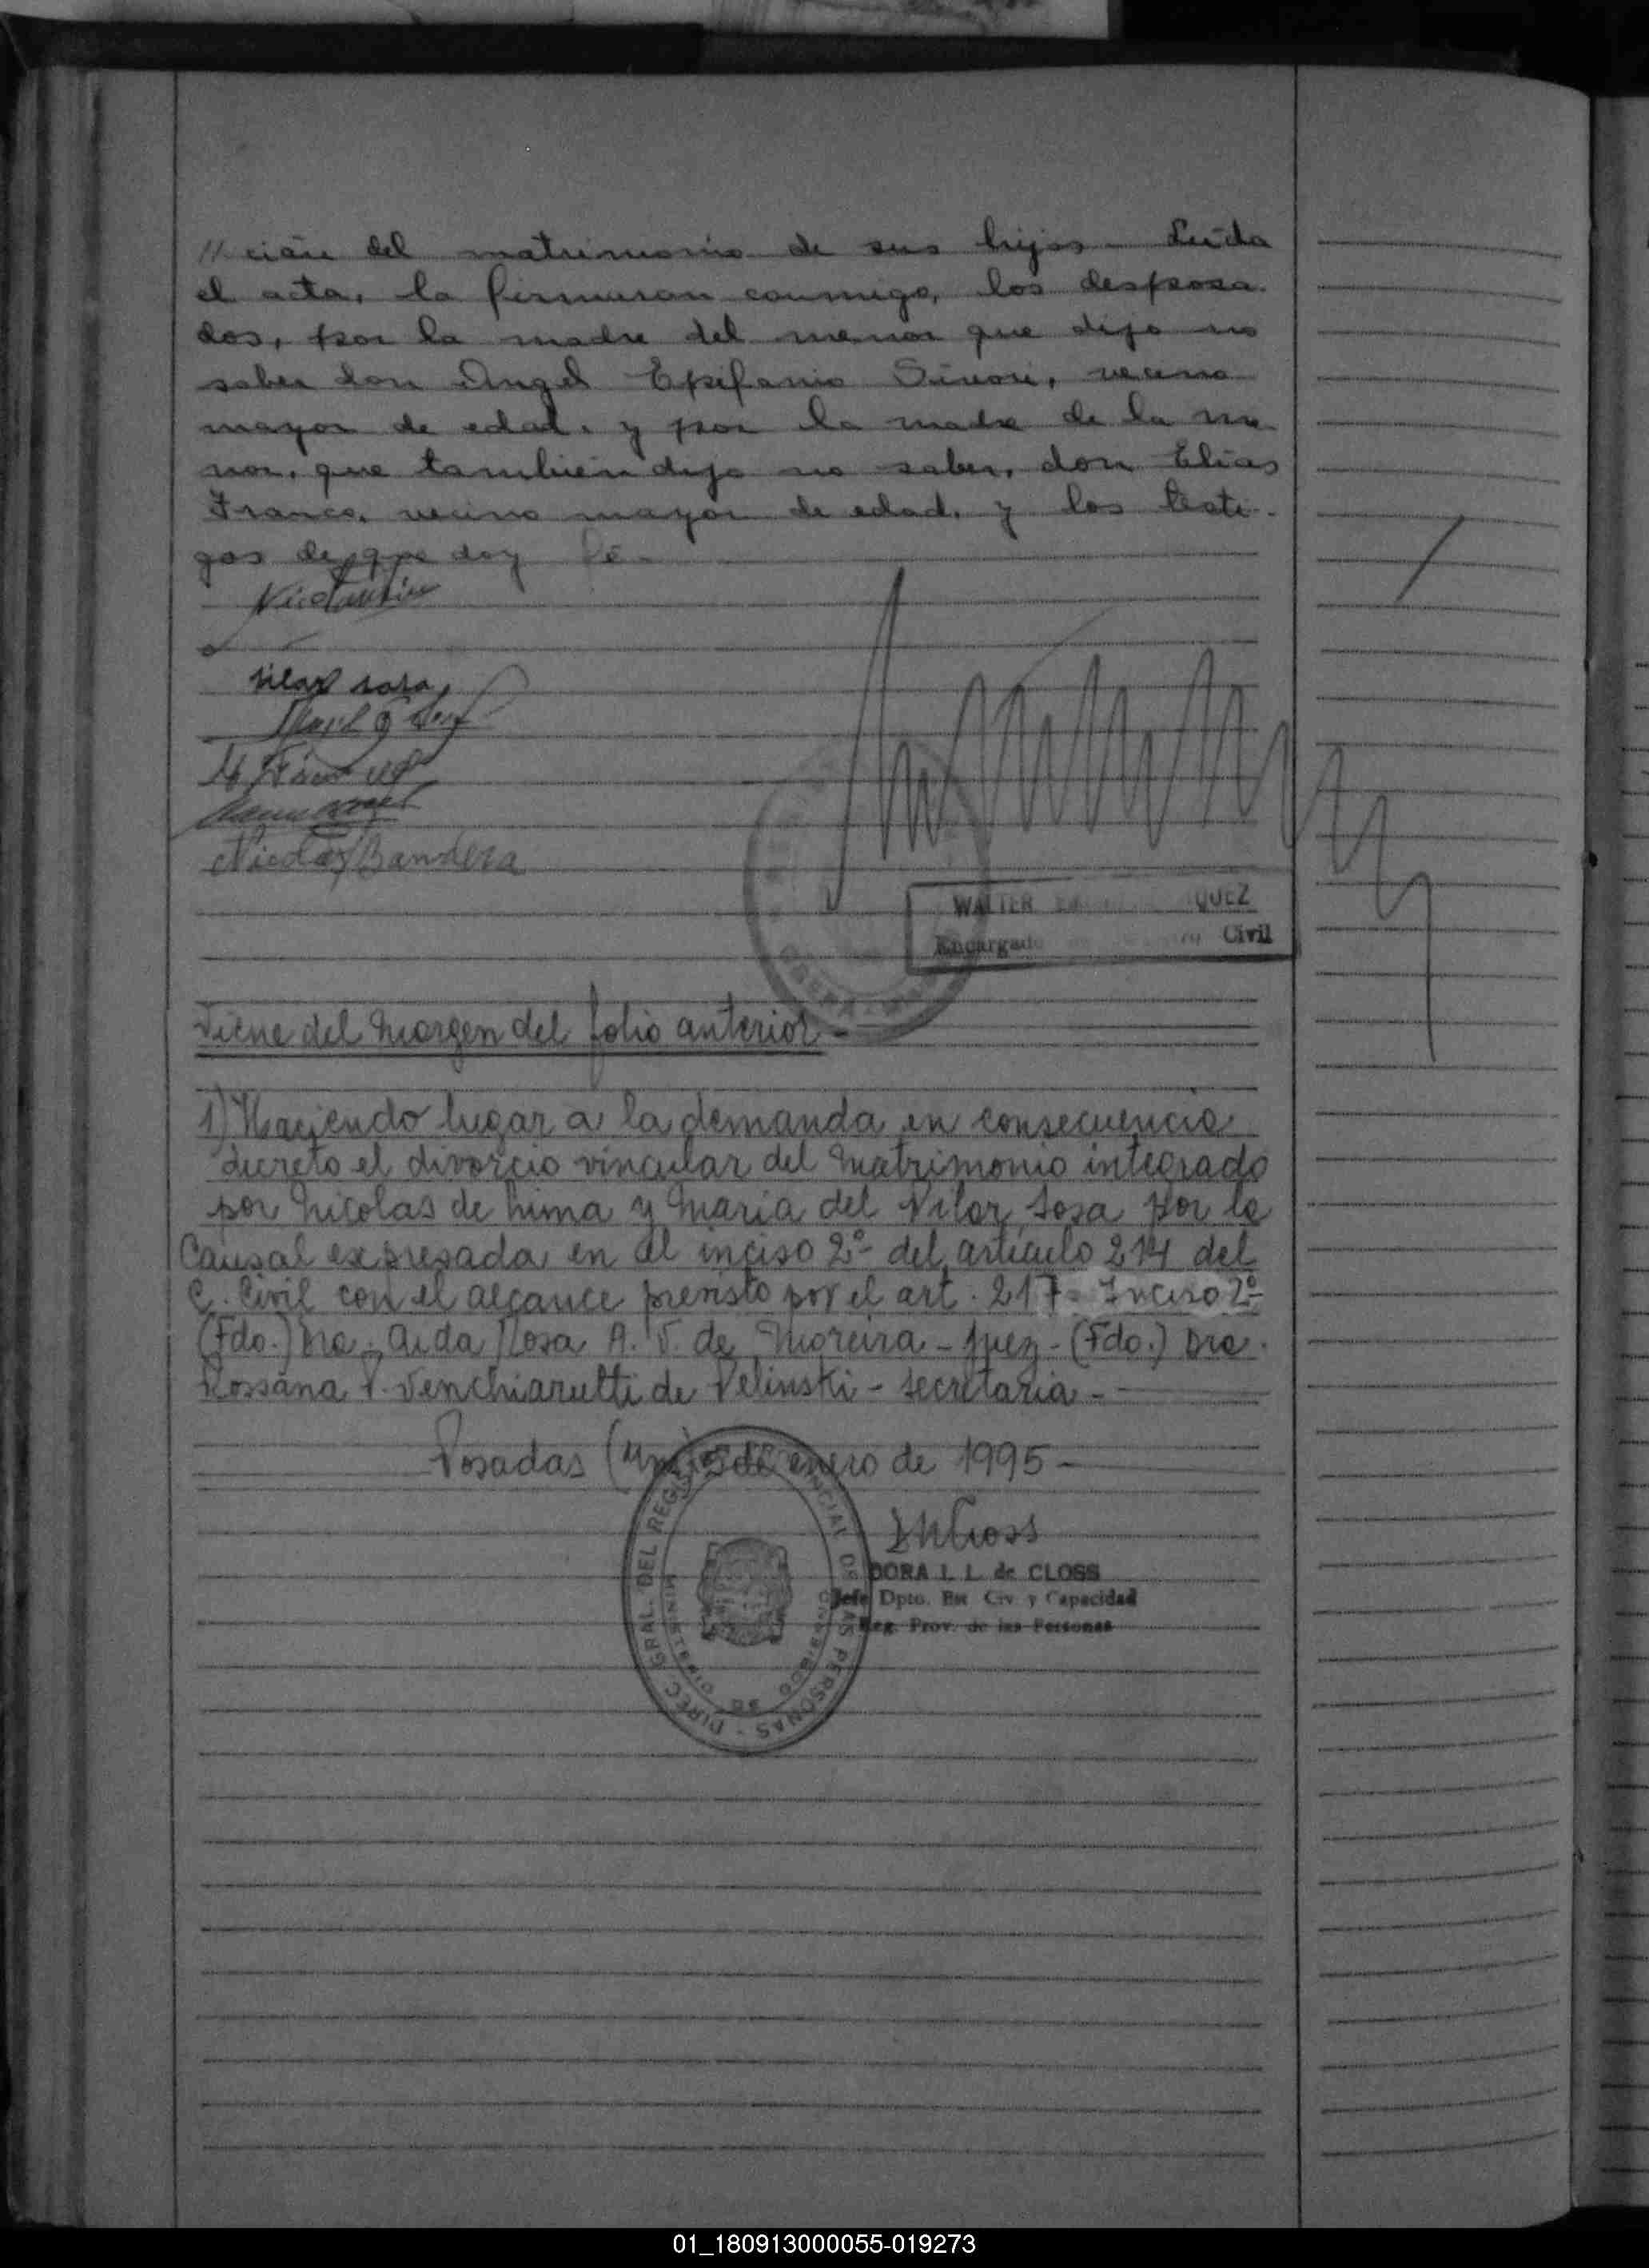 // ción del matrimonio de sus hijos - Leída
el acta, la firmaron conmigo, los desposa-
dos, por la madre del menor que dijo no
saber don Angel Epifanio, vecino
mayor de edad, y por la madre de la me-
nor, que también dijo no saber, don Elías
Franco, vecino mayor de edad, y los testi-
gos de que doy fé -
Pilar sosa
Nicolás Bandera
WALTER QUEZ
Encargado Civil
Viene del Margen del folio anterior -
1) Haciendo lugar a la demanda en consecuencia
decreto el divorcio vincular del Matrimonio integrado
por Nicolas de Lima y Maria del Pilar Sosa por la
Causal expresada en el inciso 2º del artículo 214 del
C. Civil con el alcance previsto por el art. 217 - Inciso 2º
(Fdo.) Dra. Aida Rosa A. V. de Moreira - Juez - (Fdo.) Dra.
Rossana P. Venchiarutti de Pelinski - Secretaria -
Posadas (Mnes) de enero de 1995 -
DIREC. GRAL. DEL REGISTRO PROVINCIAL DE LAS PERSONAS
MINISTERIO DE GOBIERNO
DORA I. L. de CLOSS
Jefe Dpto. Est. Civ. y Capacidad
Reg. Prov. de las Personas
01_180913000055-019273